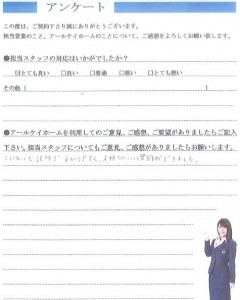 アンケート
この度は、ご契約下さり誠にありがとうございます。
担当営業のこと、アールケイホームのことについて、ご感想をよろしくお願い致します。
●担当スタッフの対応はいかがでしたか?
☑とても良い □良い □普通 □悪い □とても悪い
その他(
●アールケイホームを利用してのご意見、ご感想、ご要望がありましたらご記入
下さい。担当スタッフについてもご意見、ご感想がありましたらお願いします。
契約ができました。